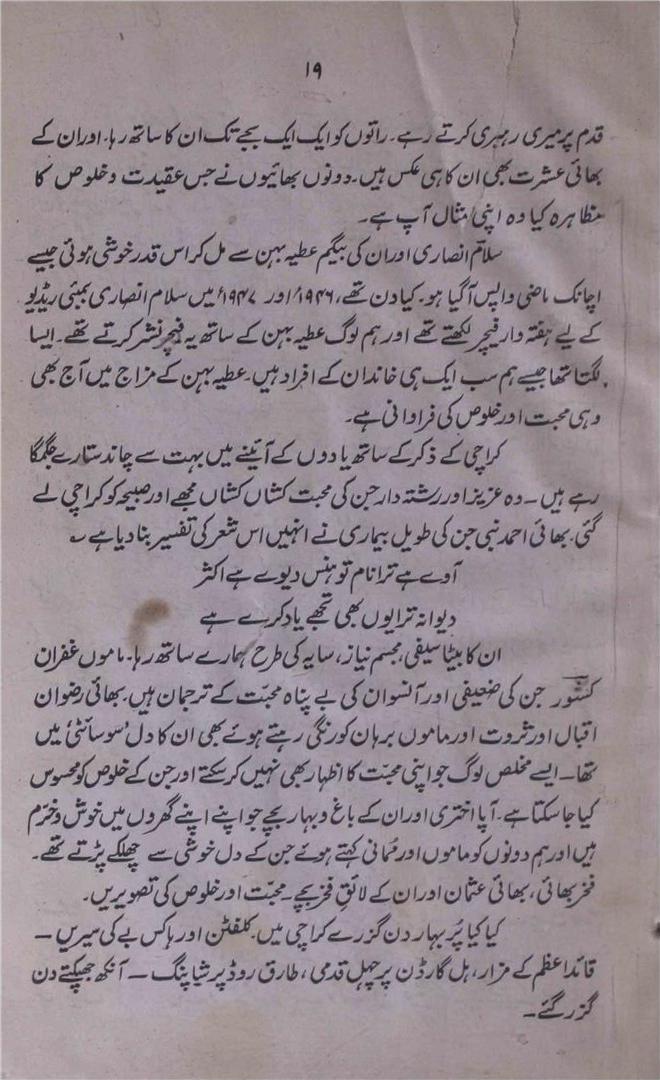 ۱۹
قدم پر میری رہبری کرتے رہے۔ راتوں کو ایک ایک بجے تک ان کا ساتھ رہا۔ اور ان کے
بھائی عشرت بھی ان کا ہی عکس ہیں۔ دونوں بھائیوں نے جس عقیدت و خلوص کا
مظاہرہ کیا وہ اپنی مثال آپ ہے۔
سلام انصاری اور ان کی بیگم عطیہ بہن سے مل کر اس قدر خوشی ہوئی جیسے
اچانک ماضی واپس آگیا ہو۔ کیا دن تھے، ۱۹۴۶ء اور ۱۹۴۷ء میں سلام انصاری بمبئی ریڈیو
کے لیے ہفتہ وار فیچر لکھتے تھے اور ہم لوگ عطیہ بہن کے ساتھ یہ فیچر نشر کرتے تھے۔ ایسا
لگتا تھا جیسے ہم سب ایک ہی خاندان کے افراد ہیں۔ عطیہ بہن کے مزاج میں آج بھی
وہی محبت اور خلوص کی فراوانی ہے۔
کراچی کے ذکر کے ساتھ یادوں کے آئینے میں بہت سے چاند ستارے جگمگا
رہے ہیں۔ وہ عزیز اور رشتہ دار جن کی محبت کشاں کشاں مجھے اور صبیحہ کو کراچی لے
گئی۔ بھائی احمد نبی جن کی طویل بیماری نے انہیں اس شعر کی تفسیر بنا دیا ہے ؎
آوے ہے ترا نام تو ہنس دیوے ہے اکثر
دیوانہ ترا یوں بھی تجھے یاد کرے ہے
ان کا بیٹا سیفی، مجسم نیاز، سایہ کی طرح ہمارے ساتھ رہا۔ ماموں غفران
کشور جن کی ضعیفی اور آنسو ان کی بے پناہ محبّت کے ترجمان ہیں۔ بھائی رضوان
اقبال اور ثروت اور ماموں برہان کورنگی رہتے ہوئے بھی ان کا دل 'سوسائٹی' میں
تھا۔ ایسے مخلص لوگ جو اپنی محبّت کا اظہار بھی نہیں کر سکتے اور جن کے خلوص کو محسوس
کیا جا سکتا ہے۔ آپا اختری اور ان کے باغ و بہار بچے جو اپنے اپنے گھروں میں خوش و خرّم
ہیں اور ہم دونوں کو ماموں اور مُمانی کہتے ہوئے جن کے دل خوشی سے چھلکے پڑتے تھے۔
فخر بھائی، بھائی عثمان اور ان کے لائقِ فخر بچے۔ محبّت اور خلوص کی تصویریں۔
کیا کیا پُر بہار دن گزرے کراچی میں۔ کلفٹن اور ہاکس بے کی سیریں ۔
قائد اعظم کے مزار، ہل گارڈن پر چہل قدمی، طارق روڈ پر شاپنگ ۔ آنکھ جھپکتے دن
گزر گئے۔